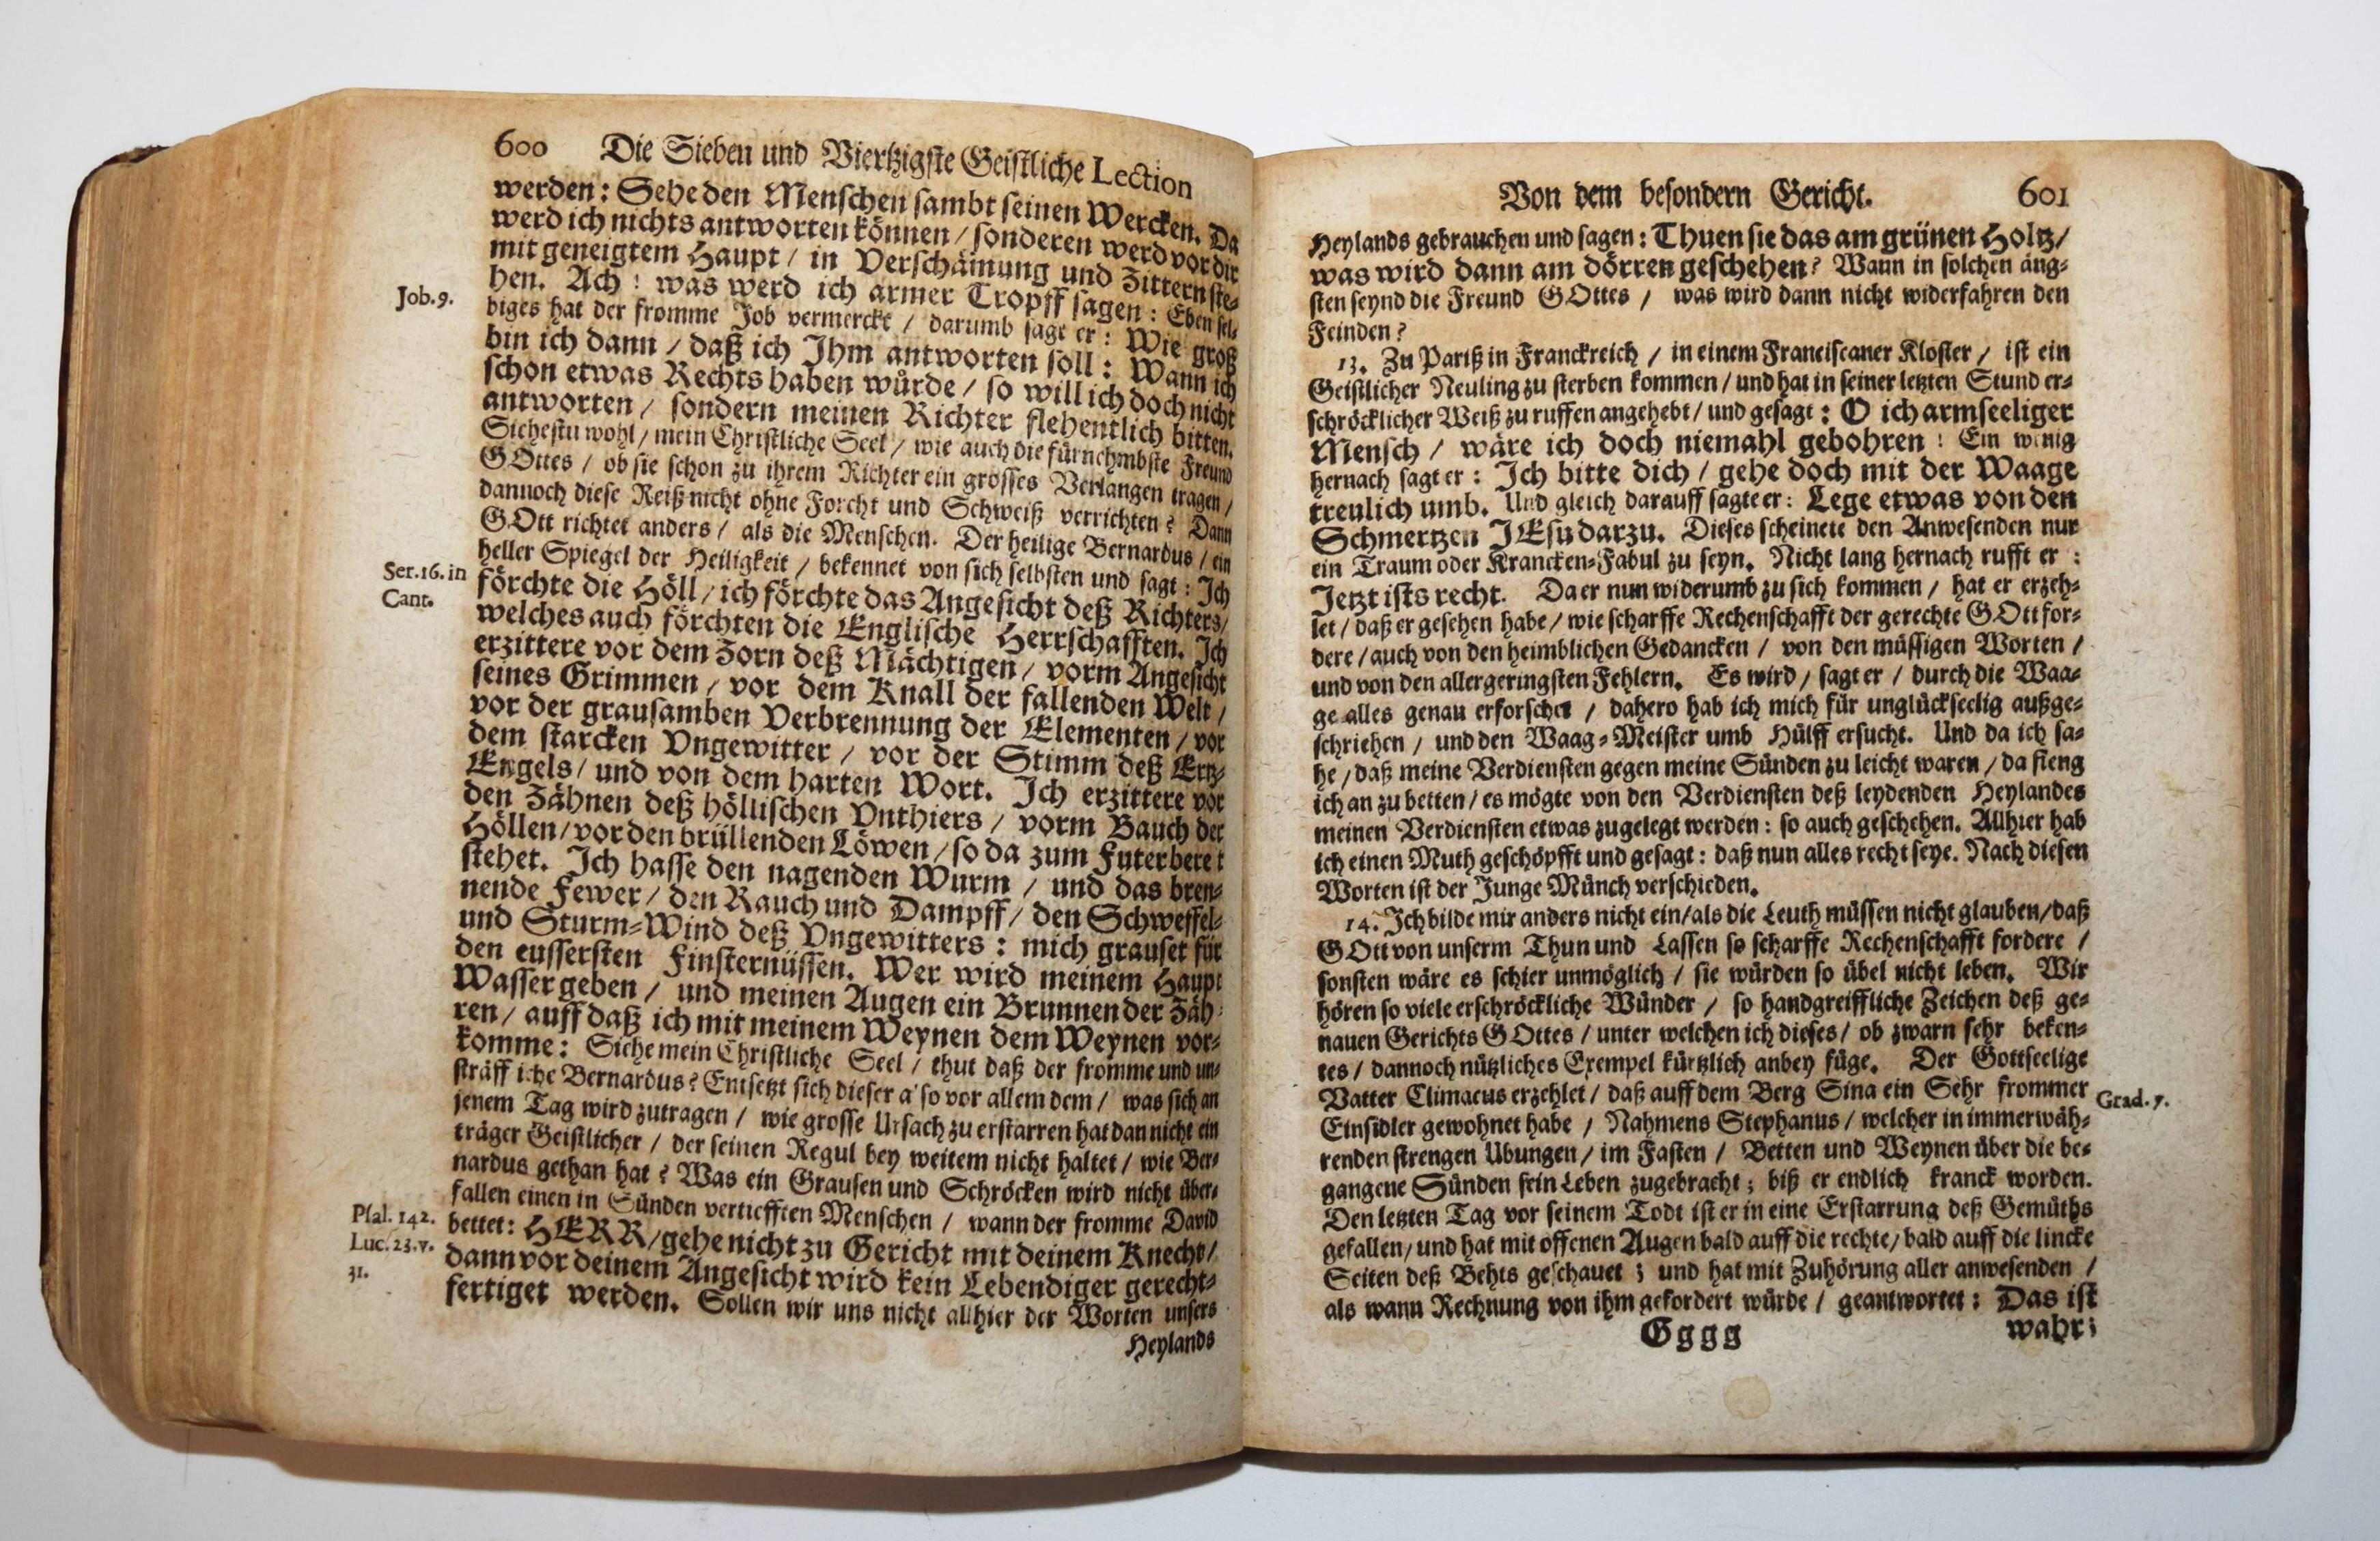 600 Die Sieben und Viertzigste Geistliche Lection
werden: Sehe den Menschen sambt seinen Wercken. Da
werd ich nichts antworten können / sonderen werd vor dir
mit geneigtem Haupt / in Verschämung und Zittern ste-
hen. Ach! was werd ich armer Tropff sagen: Eben sel-
Job. 9.
biges hat der fromme Job vermerckt / darumb sagt er: Wie groß
bin ich dann / daß ich Ihm antworten soll: Wann ich
schon etwas Rechts haben würde / so will ich doch nicht
antworten / sondern meinen Richter flehentlich bitten.
Sihestu wohl / mein Christliche Seel / wie auch die fürnehmbste Freund
GOttes / ob sie schon zu ihrem Richter ein grosses Verlangen tragen /
dannoch diese Reiß nicht ohne Forcht und Schweiß verrichten? Dann
GOtt richtet anders / als die Menschen. Der heilige Bernardus / ein
heller Spiegel der Heiligkeit / bekennet von sich selbsten und sagt: Ich
Ser. 16. in
Cant.
förchte die Höll / ich förchte das Angesicht deß Richters /
welches auch förchten die Englische Herrschafften. Ich
erzittere vor dem Zorn deß Mächtigen / vorm Angesicht
seines Grimmen / vor dem Knall der fallenden Welt /
vor der grausamben Verbrennung der Elementen / vor
dem starcken Vngewitter / vor der Stimm deß Ertz-
Engels / und von dem harten Wort. Ich erzittere vor
den Zähnen deß höllischen Vnthiers / vorm Bauch der
Höllen / vor den brüllenden Löwen / so da zum Futer beret
stehet. Ich hasse den nagenden Wurm / und das bren-
nende Fewer / den Rauch und Dampff / den Schweffel-
und Sturm-Wind deß Vngewitters: mich grauset für
den eussersten Finsternüssen. Wer wird meinem Haupt
Wasser geben / und meinen Augen ein Brunnen der Zäh-
ren / auff daß ich mit meinem Weynen dem Weynen vor-
komme: Siehe mein Christliche Seel / thut daß der fromme und un-
sträffliche Bernardus? Entsetzt sich dieser also vor allem dem / was sich an
jenem Tag wird zutragen / wie grosse Ursach zu erstarren hat dan nicht ein
träger Geistlicher / der seinen Regul bey weitem nicht haltet / wie Ber-
nardus gethan hat? Was ein Grausen und Schröcken wird nicht über-
fallen einen in Sünden vertiefften Menschen / wann der fromme David
Psal. 142.
Luc. 23. v.
31.
bettet: HERR / gehe nicht zu Gericht mit deinem Knecht /
dann vor deinem Angesicht wird kein Lebendiger gerecht-
fertiget werden. Sollen wir uns nicht allhier der Worten unsers
Heylands
Von dem besondern Gericht. 601
Heylands gebrauchen und sagen: Thuen sie das am grünen Holtz /
was wird dann am dörren geschehen? Wann in solchen äng-
sten seynd die Freund GOttes / was wird dann nicht widerfahren den
Feinden?
13. Zu Pariß in Franckreich / in einem Franciscaner Kloster / ist ein
Geistlicher Neuling zu sterben kommen / und hat in seiner letzten Stund er-
schröcklicher Weiß zu ruffen angehebt / und gesagt: O ich armseeliger
Mensch / wäre ich doch niemahl gebohren! Ein wenig
hernach sagt er: Ich bitte dich / gehe doch mit der Waage
treulich umb. Und gleich darauff sagte er: Lege etwas von den
Schmertzen JEsu darzu. Dieses scheinete den Anwesenden nur
ein Traum oder Krancken-Fabul zu seyn. Nicht lang hernach rufft er:
Jetzt ists recht. Da er nun widerumb zu sich kommen / hat er erzeh-
let / daß er gesehen habe / wie scharffe Rechenschafft der gerechte GOtt for-
dere / auch von den heimblichen Gedancken / von den müssigen Worten /
und von den allergeringsten Fehlern. Es wird / sagt er / durch die Waa-
ge alles genau erforschet / dahero hab ich mich für unglückseelig außge-
schriehen / und den Waag-Meister umb Hülff ersucht. Und da ich sa-
he / daß meine Verdiensten gegen meine Sünden zu leicht waren / da fieng
ich an zu betten / es mögte von den Verdiensten deß leydenden Heylandes
meinen Verdiensten etwas zugelegt werden: so auch geschehen. Allhier hab
ich einen Muth geschöpfft und gesagt: daß nun alles recht seye. Nach diesen
Worten ist der Junge Münch verschieden.
14. Ich bilde mir anders nicht ein / als die Leuth müssen nicht glauben / daß
GOtt von unserm Thun und Lassen so scharffe Rechenschafft fordere /
sonsten wäre es schier unmöglich / sie würden so übel nicht leben. Wir
hören so viele erschröckliche Wünder / so handgreiffliche Zeichen deß ge-
nauen Gerichts GOttes / unter welchen ich dieses / ob zwarn sehr beken-
tes / dannoch nützliches Exempel kürtzlich anbey füge. Der Gottseelige
Vatter Climacus erzehlet / daß auff dem Berg Sina ein Sehr frommer
Grad. 7.
Einsidler gewohnet habe / Nahmens Stephanus / welcher in immerwäh-
renden strengen Übungen / im Fasten / Betten und Weynen über die be-
gangene Sünden sein Leben zugebracht; biß er endlich kranck worden.
Den letzten Tag vor seinem Todt ist er in eine Erstarrung deß Gemüths
gefallen / und hat mit offenen Augen bald auff die rechte / bald auff die lincke
Seiten deß Behts geschauet; und hat mit Zuhörung aller anwesenden /
als wann Rechnung von ihm gefordert würde / geantwortet: Das ist
Gggg wahr;